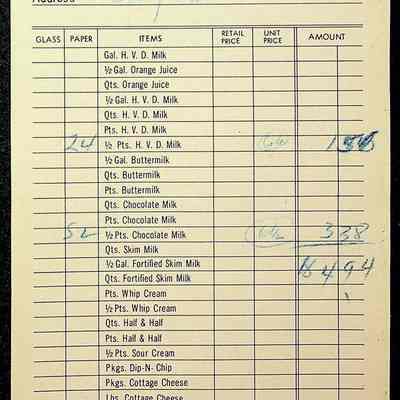 Address
GLASS PAPER ITEMS RETAIL PRICE UNIT PRICE AMOUNT
Gal. H. V. D. Milk
½ Gal. Orange Juice
Qts. Orange Juice
½ Gal. H. V. D. Milk
Qts. H. V. D. Milk
Pts. H. V. D. Milk
24 ½ Pts. H. V. D. Milk 1 56
½ Gal. Buttermilk
Qts. Buttermilk
Pts. Buttermilk
Qts. Chocolate Milk
Pts. Chocolate Milk
52 ½ Pts. Chocolate Milk 3 38
Qts. Skim Milk
½ Gal. Fortified Skim Milk 4 94
Qts. Fortified Skim Milk
Pts. Whip Cream
½ Pts. Whip Cream
Qts. Half & Half
Pts. Half & Half
½ Pts. Sour Cream
Pkgs. Dip-N-Chip
Pkgs. Cottage Cheese
Lbs. Cottage Cheese